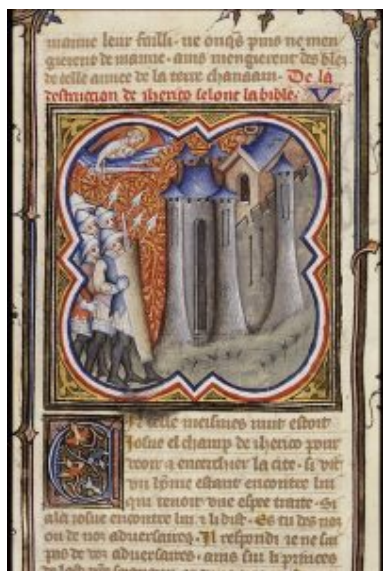 manne leur failli. ne onqs puis ne men
gierent de manne. ains mengierent des blez
de celle annee de la terre chanaam. De la
destruction de iherico selonc la bible. V
En celle meismes nuit estoit
Josue el champ de iherico pour
veoir & encerchier la cite. si vit
vn hõme estant encontre lui
qui tenoit vne espee traite. Si
ala iosue encontre lui & li dist. Es tu des noz
ou de noz aduersaires. Il respondi ie ne sui
pas de voz aduersaires. ains sui li princes